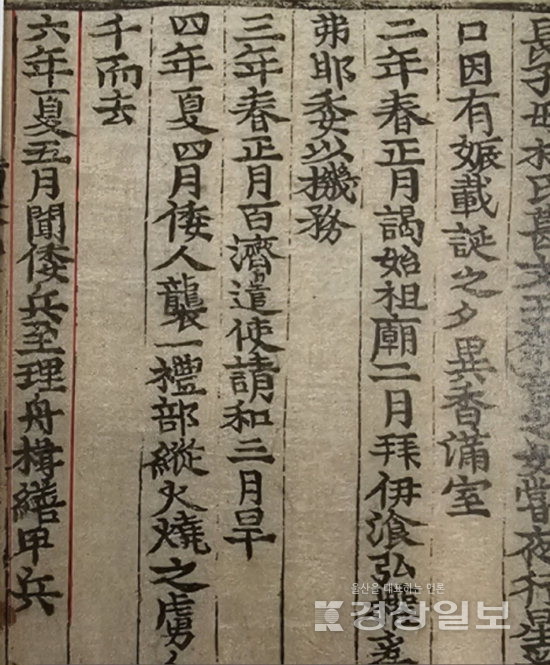 長子母朴氏葛文王奈音之女嘗夜行星
口因有娠載誕之夕異香滿室
二年春正月謁始祖廟二月拜伊飡弘權爲
弗耶委以機務
三年春正月百濟遣使請和三月旱
四年夏四月倭人襲一禮部縱火燒之虜人
千而去
六年夏五月聞倭兵至理舟楫繕甲兵
울산을 대표하는 언론
경상일보